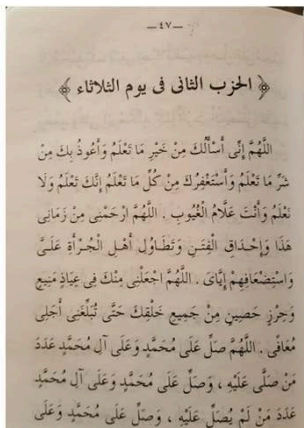 — ٤٧ —
﴿ الحزب الثانى فى يوم الثلاثاء ﴾
اللَّهُمَّ إِنِّى أَسْأَلُكَ مِنْ خَيْرِ مَا تَعْلَمُ وَأَعُوذُ بِكَ مِنْ
شَرِّ مَا تَعْلَمُ وَأَسْتَغْفِرُكَ مِنْ كُلِّ مَا تَعْلَمُ إِنَّكَ تَعْلَمُ وَلَا
نَعْلَمُ وَأَنْتَ عَلَّامُ الْغُيُوبِ . اللَّهُمَّ ارْحَمْنِى مِنْ زَمَانِى
هَذَا وَإِحْدَاقِ الْفِتَنِ وَتَطَاوُلِ أَهْلِ الْجُرْأَةِ عَلَىَّ
وَاسْتِضْعَافِهِمْ إِيَّاىَ . اللَّهُمَّ اجْعَلْنِى مِنْكَ فِى عِيَاذٍ مَنِيعٍ
وَحِرْزٍ حَصِينٍ مِنْ جَمِيعِ خَلْقِكَ حَتَّى تُبَلِّغَنِى أَجَلِى
مُعَافًى . اللَّهُمَّ صَلِّ عَلَى مُحَمَّدٍ وَعَلَى آلِ مُحَمَّدٍ عَدَدَ
مَنْ صَلَّى عَلَيْهِ ، وَصَلِّ عَلَى مُحَمَّدٍ وَعَلَى آلِ مُحَمَّدٍ
عَدَدَ مَنْ لَمْ يُصَلِّ عَلَيْهِ ، وَصَلِّ عَلَى مُحَمَّدٍ وَعَلَى